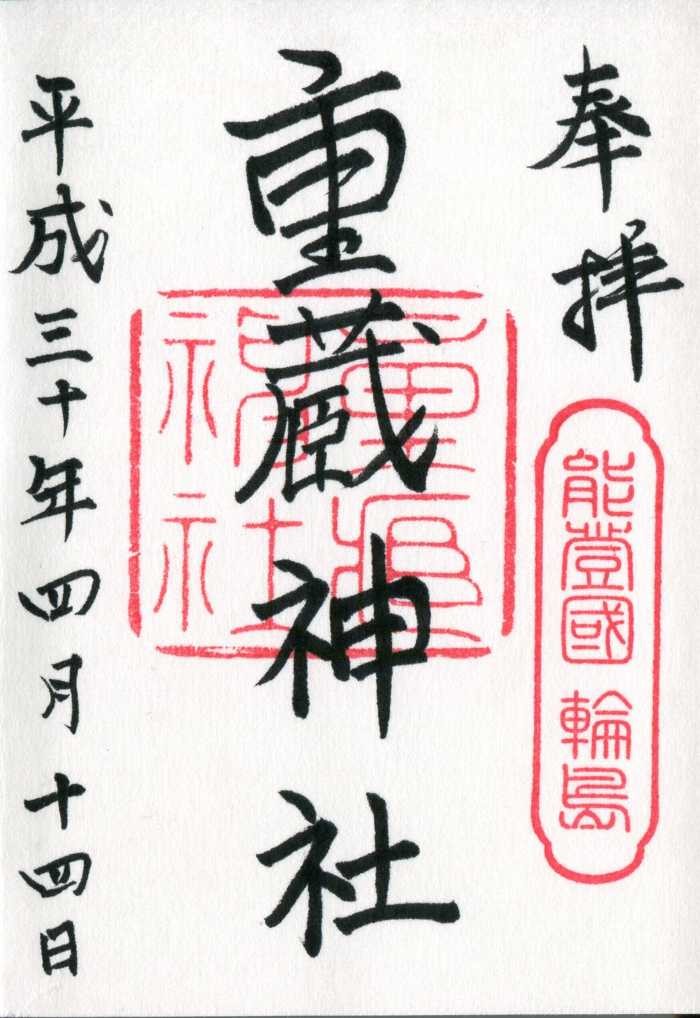 奉拝
能登國 輪島
重蔵神社
重蔵神社
平成三十年四月十四日